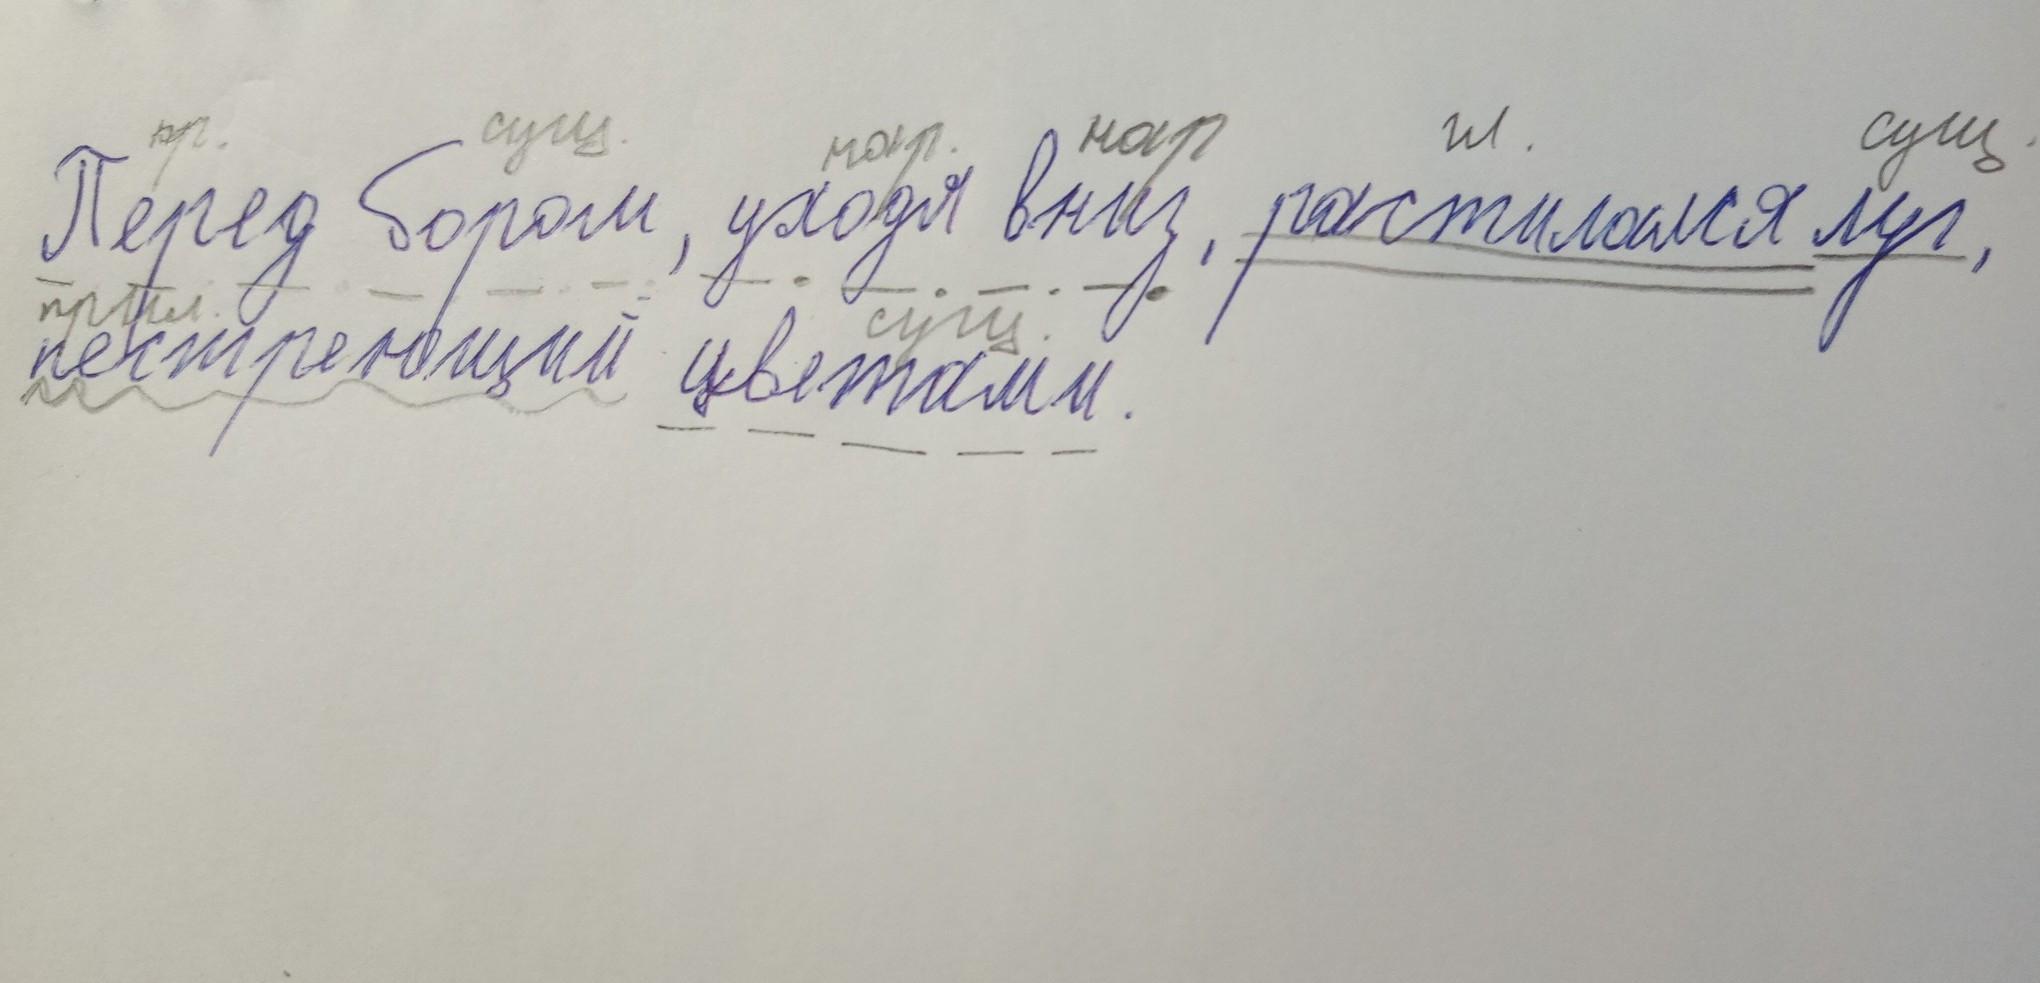 пр. сущ. нар. нар гл. сущ.
Перед бором, уходя вниз, растилался луг,
прил. сущ.
пестреющий цветами.